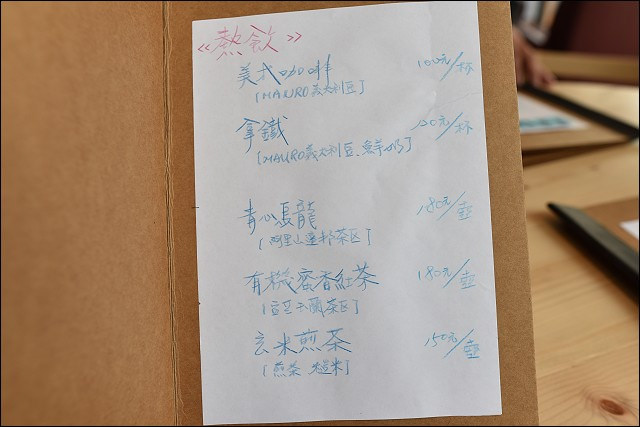 《熱飲》
美式咖啡 100元/杯
[MAURO義大利豆]
拿鐵 120元/杯
[MAURO義大利豆、鮮奶]
青心烏龍 180元/壺
[阿里山 茶区]
有機蜜香紅茶 180元/壺
[宜兰 茶区]
玄米煎茶 150元/壺
[煎茶 糙米]